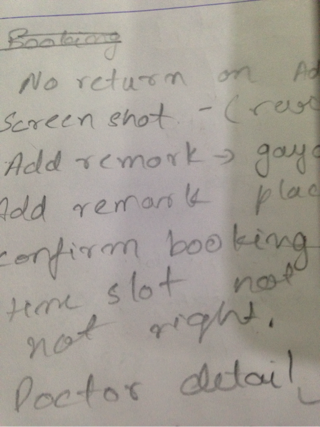 Booking
No return on Ad
Screen shot - (
Add remork → gay
Add remark plac
confirm booking
time slot not
not right.
Doctor detail